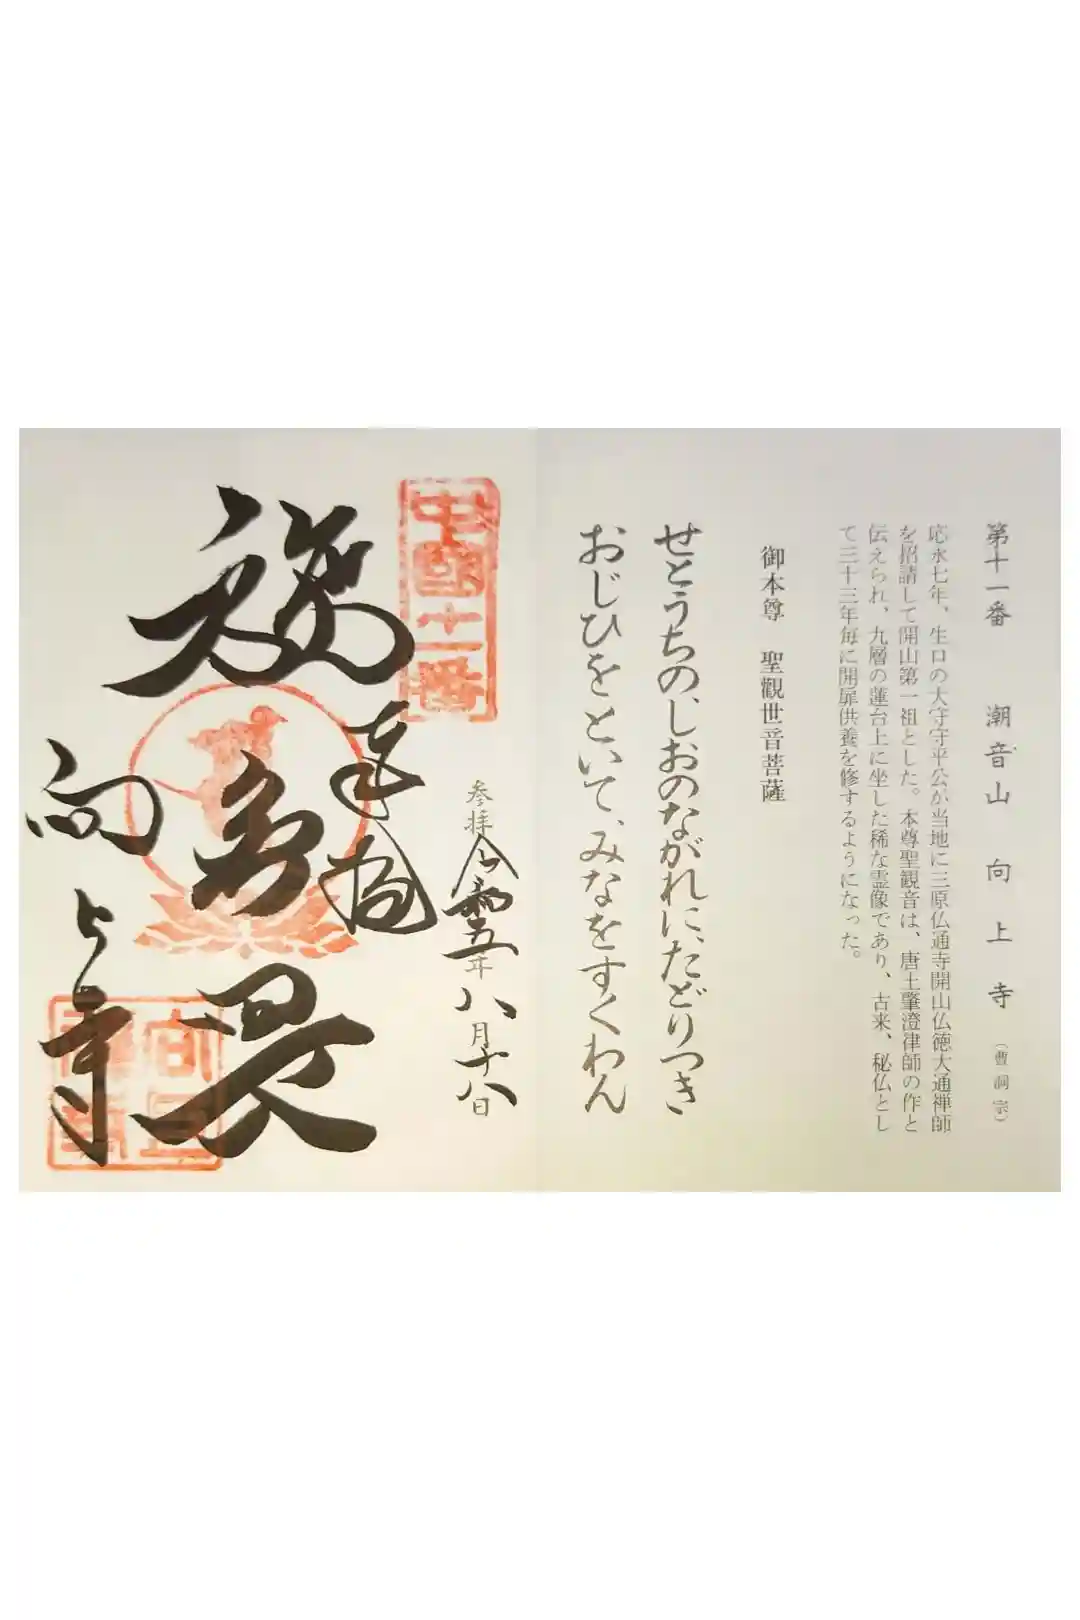 第十一番 潮音山 向上寺 （曹洞宗）
応永七年、生口の大守守平公が当地に三原仏通寺開山仏徳大通禅師
を招請して開山第一祖とした。本尊聖観音は、唐土肇澄律師の作と
伝えられ、九層の蓮台上に坐した稀な霊像であり、古来、秘仏とし
て三十三年毎に開扉供養を修するようになった。
御本尊 聖観世音菩薩
せとうちの、しおのながれに、たどりつき
おじひをといて、みなをすくわん
参拝 令和五年八月十八日
中國十一番
奉拝
施無畏
向上寺